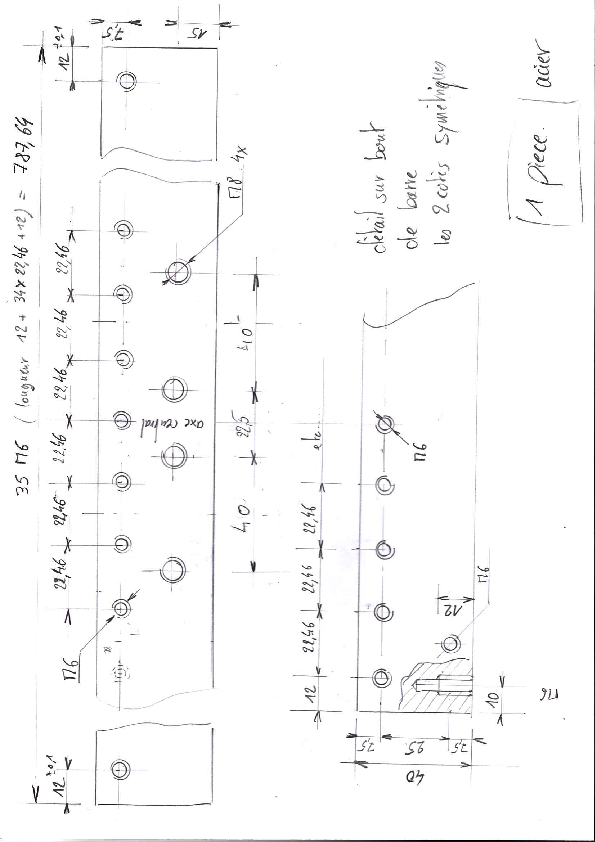 35 M6 ( longueur 12 + 34 x 22,46 + 12) = 787,64
12 ±0,1
22,46
22,46
22,46
22,46
22,46
22,46
12 ±0,1
M6
7,5
15
M8 4x
axe central
40
22,5
40
détail sur bout
de barre
les 2 cotés symétriques
1 piece acier
12
22,46
22,46
22,46
etc...
M6
M6
12
10
M6
7,5
25
7,5
40